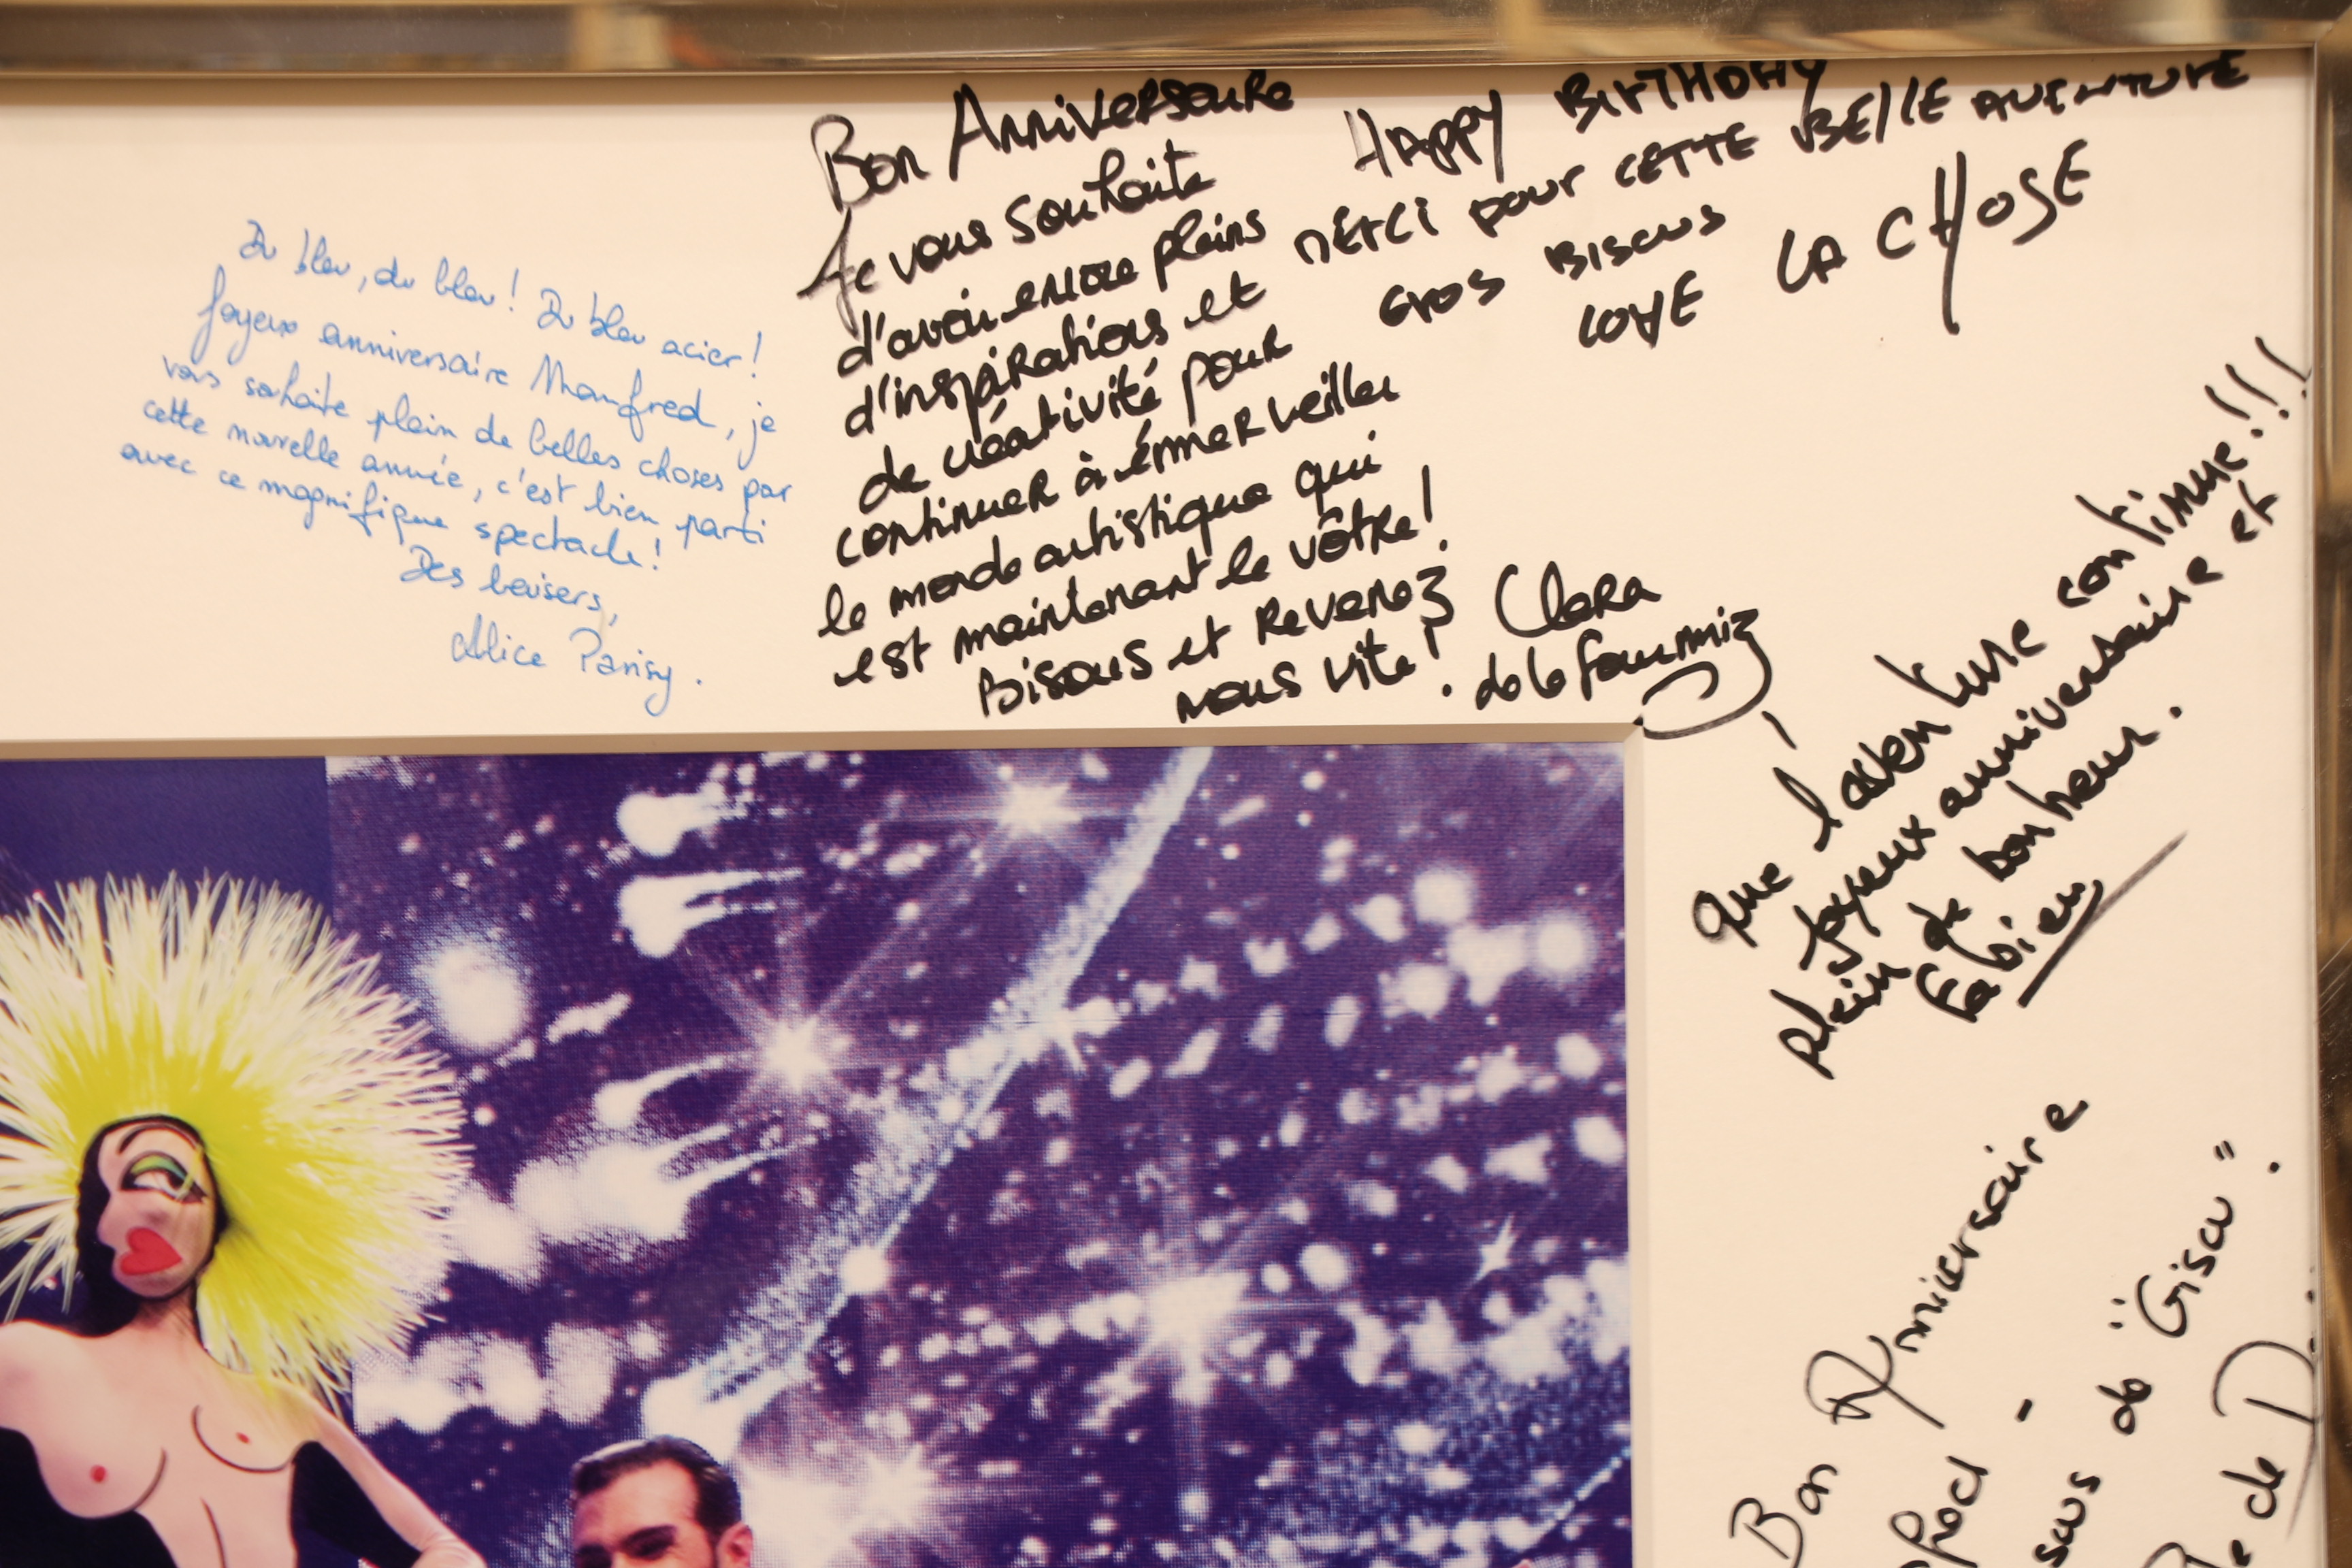 Du bleu, du bleu! Du bleu acier!
Joyeux anniversaire Manfred, je
vous souhaite plein de belles choses par
cette nouvelle année, c'est bien parti
avec ce magnifique spectacle!
Des baisers,
Alice Parisy.
Bon Anniversaire
Je vous souhaite
d'avoir encore pleins
d'inspirations et
de créativité pour
continuer à émmerveiller
le monde artistique qui
est maintenant le vôtre!
Bisous et Revenez
nous vite!
Clara
HAPPY BIRTHDAY
MERCI POUR CETTE BELLE AVENTURE
GROS BISOUS
LOVE LA CHOSE
Que l'aventure continue!!!
Joyeux anniversaire et
plein de bonheur.
Fabien
Bon Anniversaire
de "Gisou".
de D.